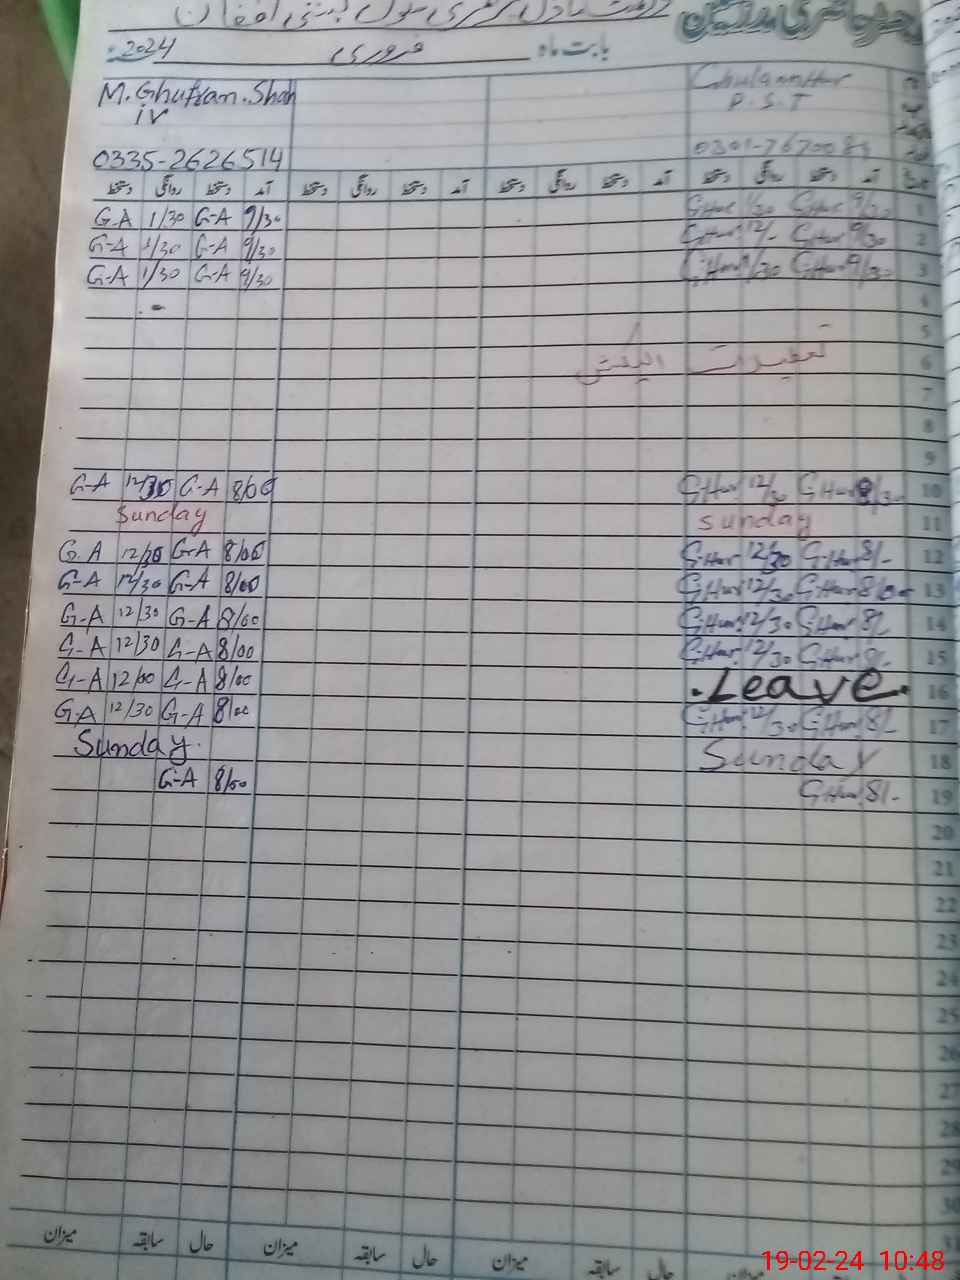 حاضری مدرسین
بابت ماہ فروری 2024ء
M. Ghufran. Shah
iv
0335-2626514
Ghulam Hur
P.S.T
دستخط روانگی دستخط آمد دستخط روانگی دستخط آمد دستخط روانگی دستخط آمد دستخط روانگی دستخط آمد
G-A 1/30 G-A 9/30 GHur 1/30 GHur 9/30 1
G-A 1/30 G-A 9/30 GHur 12/- GHur 9/30 2
G-A 1/30 G-A 9/30 GHur 1/30 GHur 9/30 3
4
5
تعطیلات الیکشن 6
7
8
9
G-A 12/30 G-A 8/00 GHur 12/30 GHur 8/30 10
Sunday Sunday 11
G.A 12/30 G-A 8/00 GHur 12/30 GHur 8/- 12
G-A 12/30 G-A 8/00 GHur 12/30 GHur 8/00 13
G-A 12/30 G-A 8/00 GHur 12/30 GHur 8/- 14
G-A 12/30 G-A 8/00 GHur 12/30 GHur 8/- 15
G-A 12/00 G-A 8/00 .Leave. 16
G.A 12/30 G-A 8/00 GHur 12/30 GHur 8/- 17
Sunday. Sunday 18
G-A 8/00 GHur 8/- 19
20
21
22
23
24
25
26
27
28
29
30
31
میزان سابقہ حال میزان سابقہ حال میزان سابقہ حال میزان
19-02-24 10:48